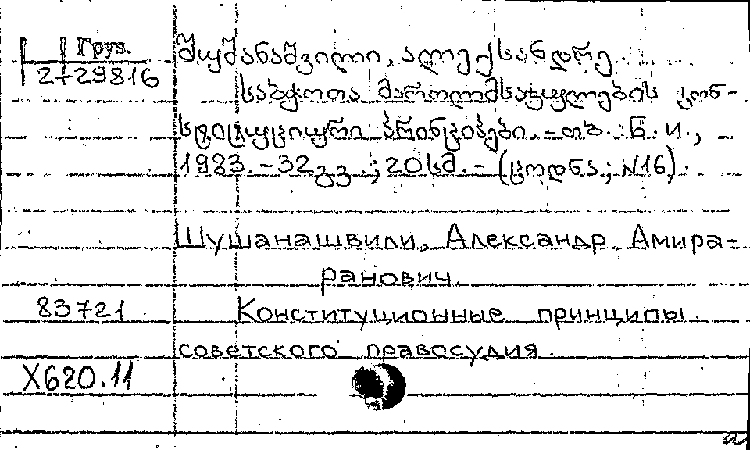 Груз.
2-29816
შუშანაშვილი, ალექსანდრე
საბჭოთა მართლმსაჯულების კონ-
სტიტუციური პრინციპები. - თბ. : Б. и.,
1983. - 32 გვ. ; 20 სმ. - (ცოდნა ; N16).
Шушанашвили, Александр Амира-
ранович.
83721 Конституционные принципы
советского правосудия.
X620.11